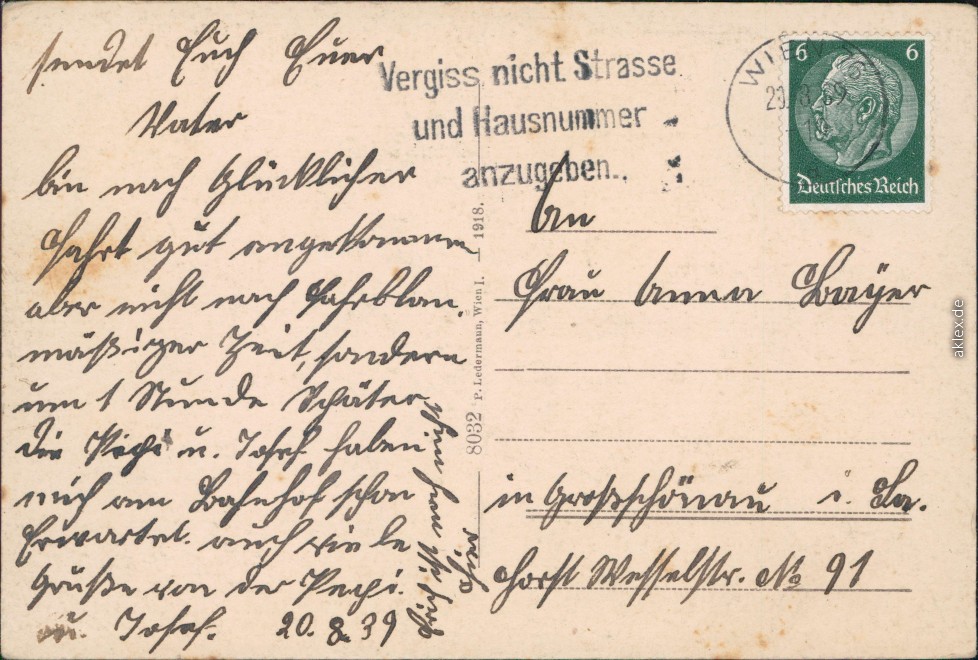 sendet Euch Euer
Vater
bin nach Glücklicher
Fahrt gut angekommen
aber nicht nach Fahrblan,
mäßiger Zeit, sondern
um 1 Stunde Später
die Pepi u. Josef haben
mich am Bahnhof schon
Erwartet. auch viele
Grüße von der Pepi.
u. Josef. 20. 8. 39
Vergiss nicht Strasse
und Hausnummer
anzugeben.
WIEN
6 6
Deutsches Reich
8032 P. Ledermann, Wien I. — 1918.
An
Frau Anna Bayer
in Großschönau i. Sa.
Horst Wesselstr. No 91
aklex.de